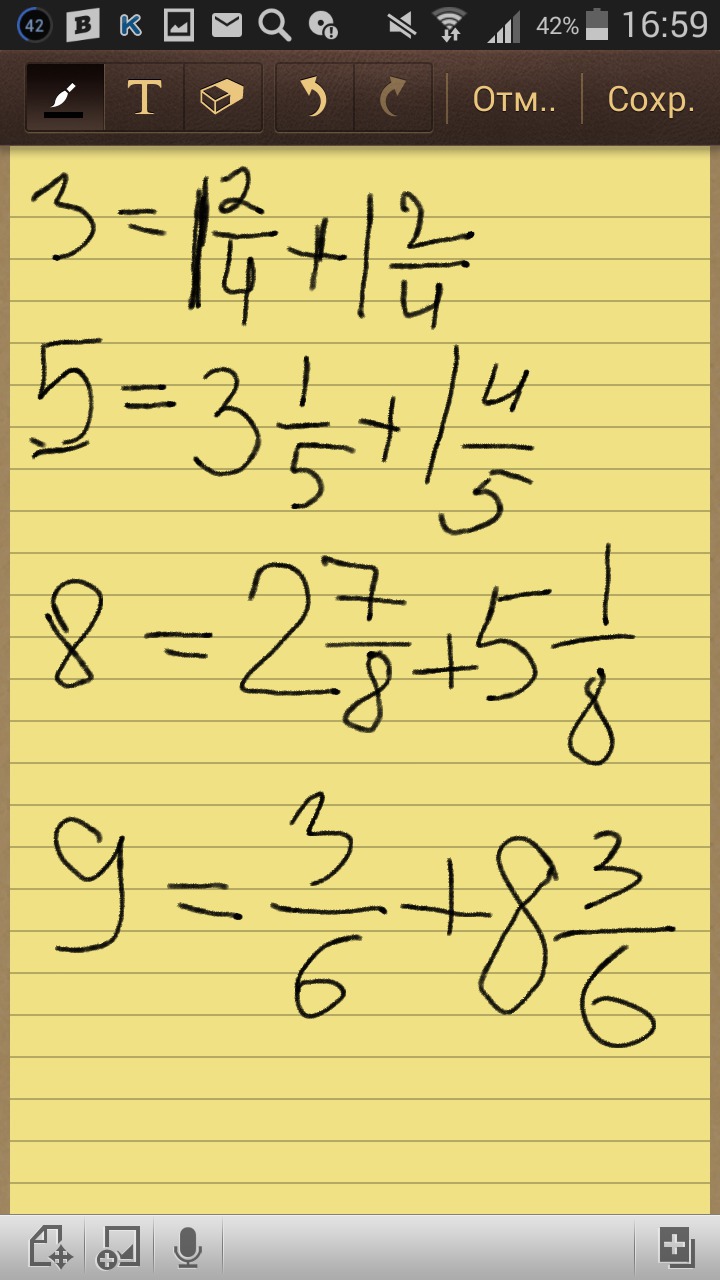 42 B K 42% 16:59
T Отм.. Сохр.
3 = 1 2/4 + 1 2/4
5 = 3 1/5 + 1 4/5
8 = 2 7/8 + 5 1/8
9 = 3/6 + 8 3/6